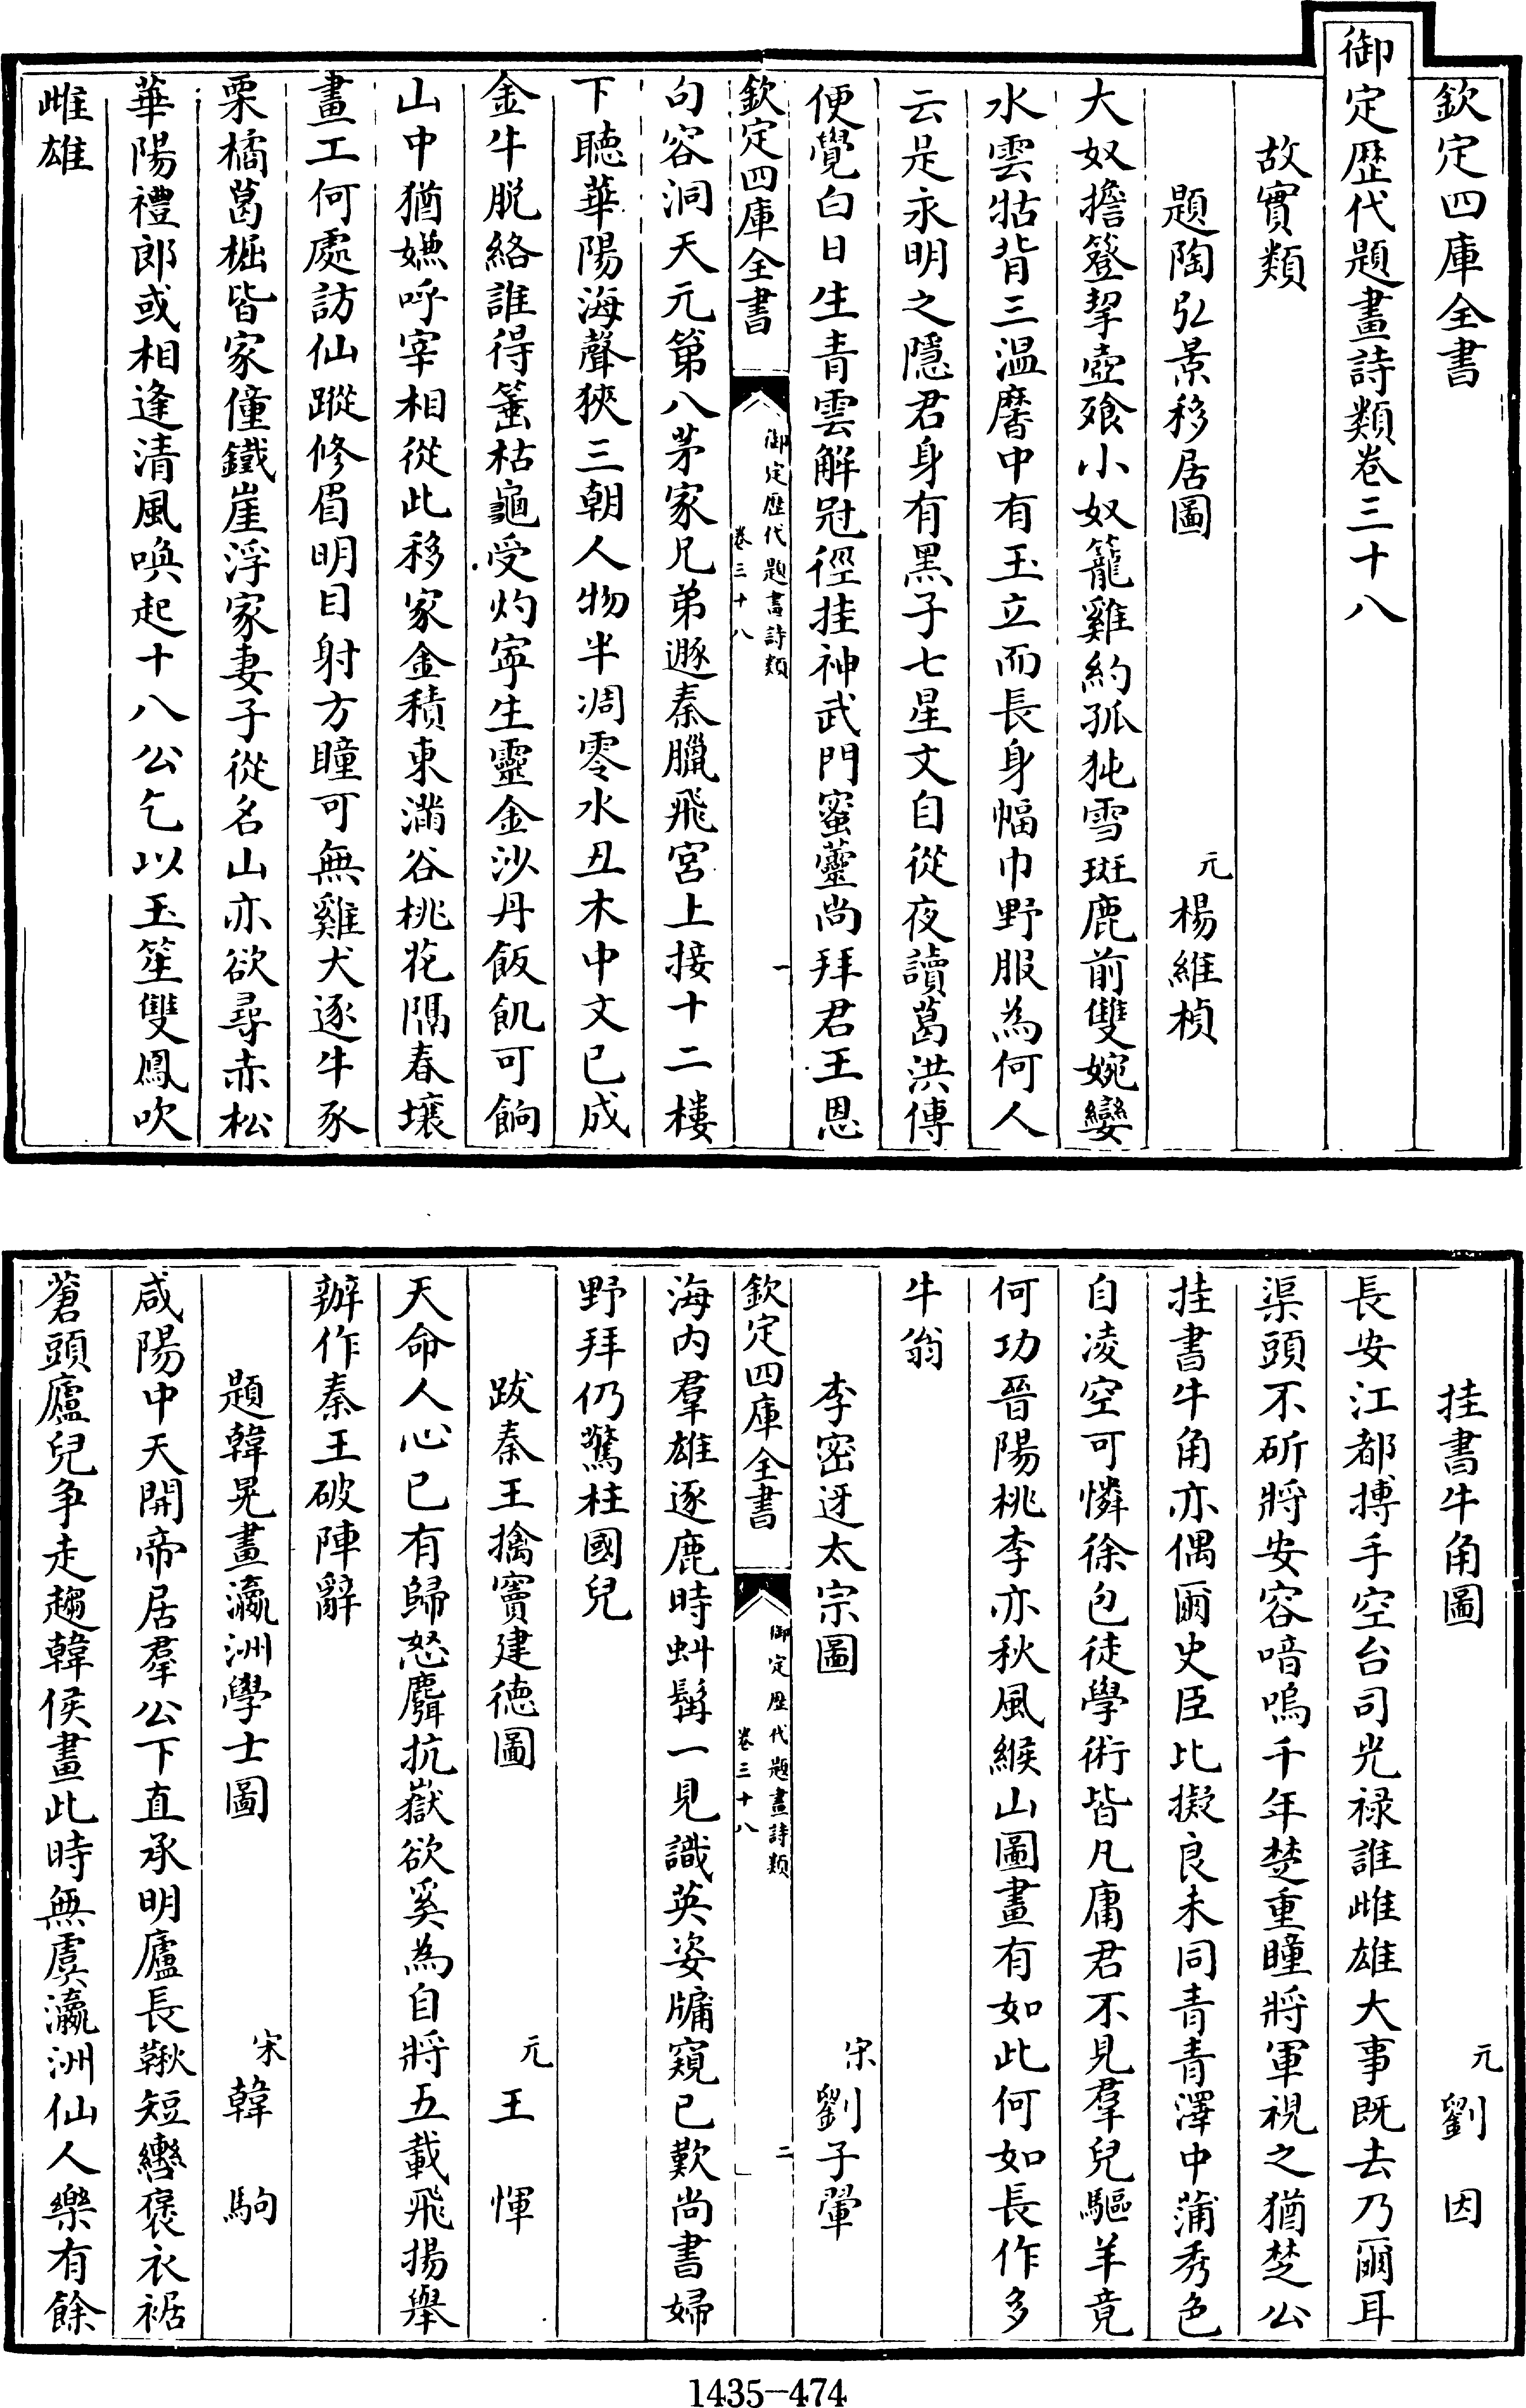 欽定四庫全書
御定歴代題畫詩類卷三十八
故實類
題陶弘景移居圖
元楊維楨
大奴擔簦挈壺飱小奴籠雞約孤㹠雪斑鹿前雙婉孌
水雲牯背三温黁中有玉立而長身幅巾野服為何人
云是永明之隱君身有黑子七星文自從夜讀葛洪傳
便覺白日生青雲解冠徑挂神武門蜜虆尚拜君王恩
欽定四庫全書
御定歴代題畫詩類
卷三十八
一
句容洞天元第八茅家兄弟遯秦臘飛宮上接十二樓
下聴華陽海聲狹三朝人物半凋零水丑木中文已成
金牛脱絡誰得箠枯龜受灼寜生靈金沙丹飯飢可餉
山中猶嫌呼宰相從此移家金積東滿谷桃花隔春壤
畫工何處訪仙蹤修眉明目射方瞳可無雞犬逐牛豕
栗橘葛椐皆家僮鐵崖浮家妻子從名山亦欲尋赤松
華陽禮郎或相逢清風喚起十八公乞以玉笙雙鳳吹
雌雄
挂書牛角圖
元劉因
長安江都搏手空台司光祿誰雌雄大事既去乃爾耳
渠頭不斫將安容喑嗚千年楚重瞳將軍視之猶楚公
挂書牛角亦偶爾史臣比擬良未同青青澤中蒲秀色
自凌空可憐徐包徒學術皆凡庸君不見羣兒驅羊竟
何功晉陽桃李亦秋風緱山圖畫有如此何如長作多
牛翁
李密迓太宗圖
宋劉子翬
欽定四庫全書
御定歴代題畫詩類
卷三十八
二
海内羣雄逐鹿時虯髯一見識英姿牖窺已歎尚書婦
野拜仍驚柱國兒
跋秦王擒竇建德圖
元王惲
天命人心已有歸怒麛抗嶽欲奚為自將五載飛揚舉
辦作秦王破陣辭
題韓晃畫瀛洲學士圖
宋韓駒
咸陽中天開帝居羣公下直承明廬長鞦短轡褒衣裾
蒼頭廬兒争走趨韓侯畫此時無虞瀛洲仙人樂有餘
1435-474